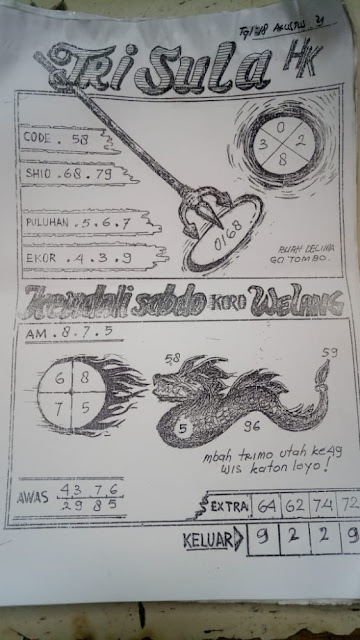 Tgl 18 AGUSTUS 21
TRi Sula HK
CODE . 58
SHIO . 68 . 79
PULUHAN . 5 . 6 . 7
EKOR . 4 . 3 . 9
0
3 2
8
0168
BUAH DELIMA
GO TOMBO.
sabdo KORO WELANG
AM . 8 . 7 . 5
6 8
7 5
58
59
5
96
mbah TRIMO utah ke49
wis katon loyo!
AWAS 43 76
29 85
EXTRA 64 62 74 72
KELUAR 9 2 2 9